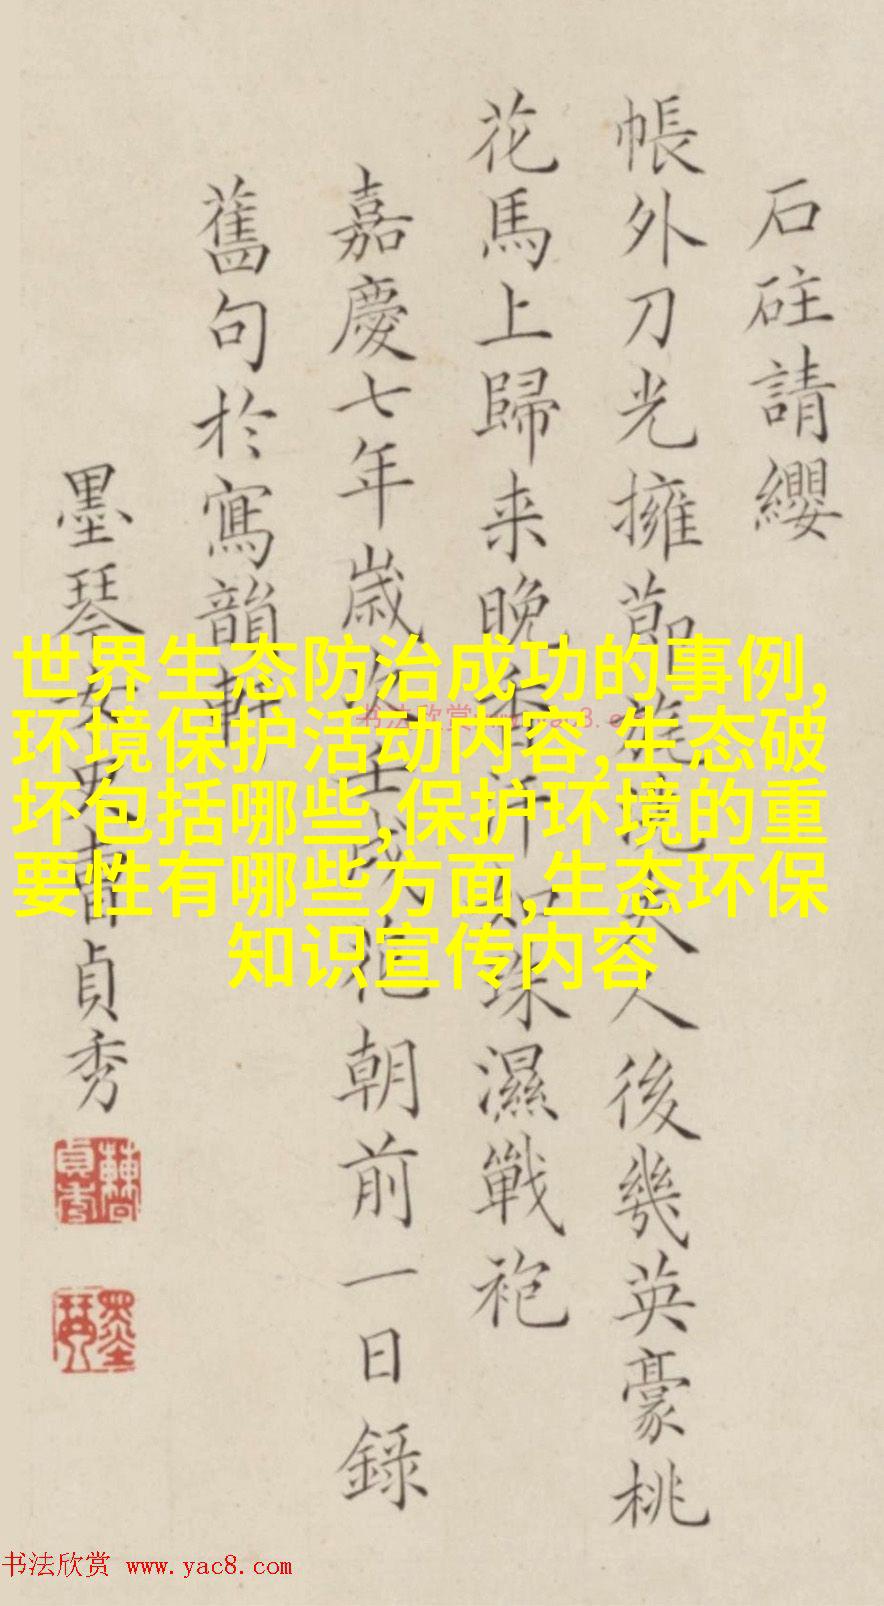 石砫請纓
帳外刀光擁節旄此夫人後幾英豪桃
花馬上歸来晚香汗如珠濕戰袍
嘉慶七年歲次壬戌花朝前一日錄
舊句於寫韻軒
墨琴女史曹貞秀
墨琴
世界生态防治成功的事例,
环境保护活动内容,生态破
坏包括哪些,保护环境的重
要性有哪些方面,生态环保
知识宣传内容
书法欣赏 www.yac8.com